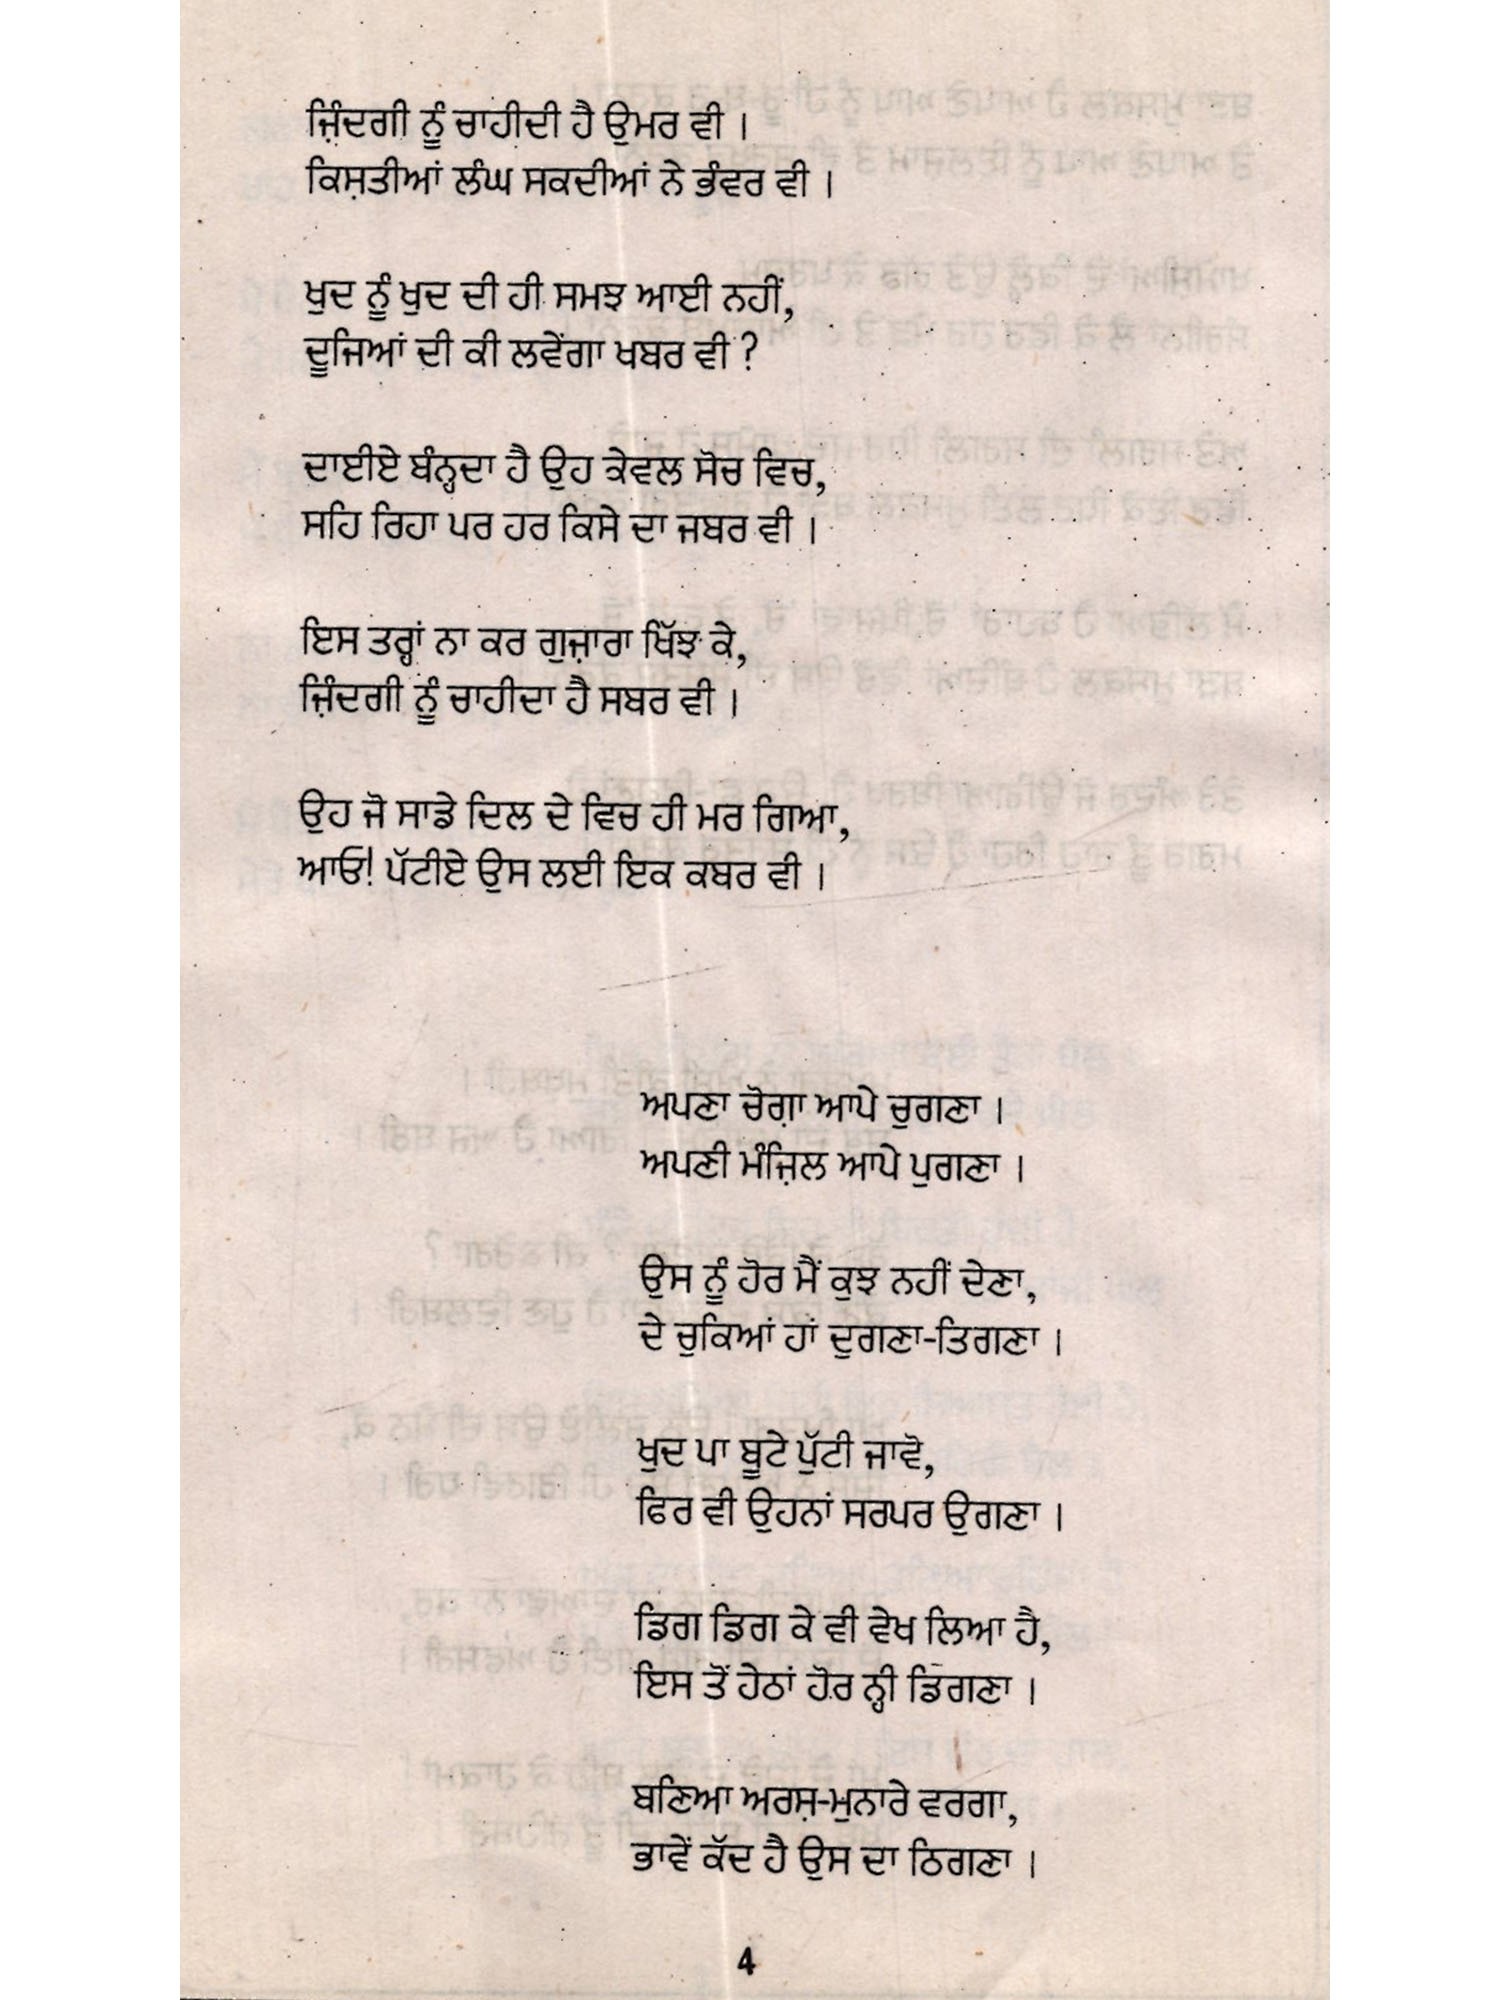 ਜ਼ਿੰਦਗੀ ਨੂੰ ਚਾਹੀਦੀ ਹੈ ਉਮਰ ਵੀ ।
ਕਿਸ਼ਤੀਆਂ ਲੰਘ ਸਕਦੀਆਂ ਨੇ ਭੰਵਰ ਵੀ ।
ਖੁਦ ਨੂੰ ਖੁਦ ਦੀ ਹੀ ਸਮਝ ਆਈ ਨਹੀਂ,
ਦੂਜਿਆਂ ਦੀ ਕੀ ਲਵੇਂਗਾ ਖਬਰ ਵੀ ?
ਦਾਈਏ ਬੰਨ੍ਹਦਾ ਹੈ ਉਹ ਕੇਵਲ ਸੋਚ ਵਿਚ,
ਸਹਿ ਰਿਹਾ ਪਰ ਹਰ ਕਿਸੇ ਦਾ ਜਬਰ ਵੀ ।
ਇਸ ਤਰ੍ਹਾਂ ਨਾ ਕਰ ਗੁਜ਼ਾਰਾ ਖਿੱਝ ਕੇ,
ਜ਼ਿੰਦਗੀ ਨੂੰ ਚਾਹੀਦਾ ਹੈ ਸਬਰ ਵੀ ।
ਉਹ ਜੋ ਸਾਡੇ ਦਿਲ ਦੇ ਵਿਚ ਹੀ ਮਰ ਗਿਆ,
ਆਓ! ਪੱਟੀਏ ਉਸ ਲਈ ਇਕ ਕਬਰ ਵੀ ।
ਅਪਣਾ ਚੋਗ਼ਾ ਆਪੇ ਚੁਗਣਾ ।
ਅਪਣੀ ਮੰਜ਼ਿਲ ਆਪੇ ਪੁਗਣਾ ।
ਉਸ ਨੂੰ ਹੋਰ ਮੈਂ ਕੁਝ ਨਹੀਂ ਦੇਣਾ,
ਦੇ ਚੁਕਿਆਂ ਹਾਂ ਦੁਗਣਾ-ਤਿਗਣਾ ।
ਖੁਦ ਪਾ ਬੂਟੇ ਪੁੱਟੀ ਜਾਵੋ,
ਫਿਰ ਵੀ ਉਹਨਾਂ ਸਰਪਰ ਉਗਣਾ ।
ਡਿਗ ਡਿਗ ਕੇ ਵੀ ਵੇਖ ਲਿਆ ਹੈ,
ਇਸ ਤੋਂ ਹੇਠਾਂ ਹੋਰ ਨ੍ਹੀ ਡਿਗਣਾ ।
ਬਣਿਆ ਅਰਸ਼-ਮੁਨਾਰੇ ਵਰਗਾ,
ਭਾਵੇਂ ਕੱਦ ਹੈ ਉਸ ਦਾ ਠਿਗਣਾ ।
4